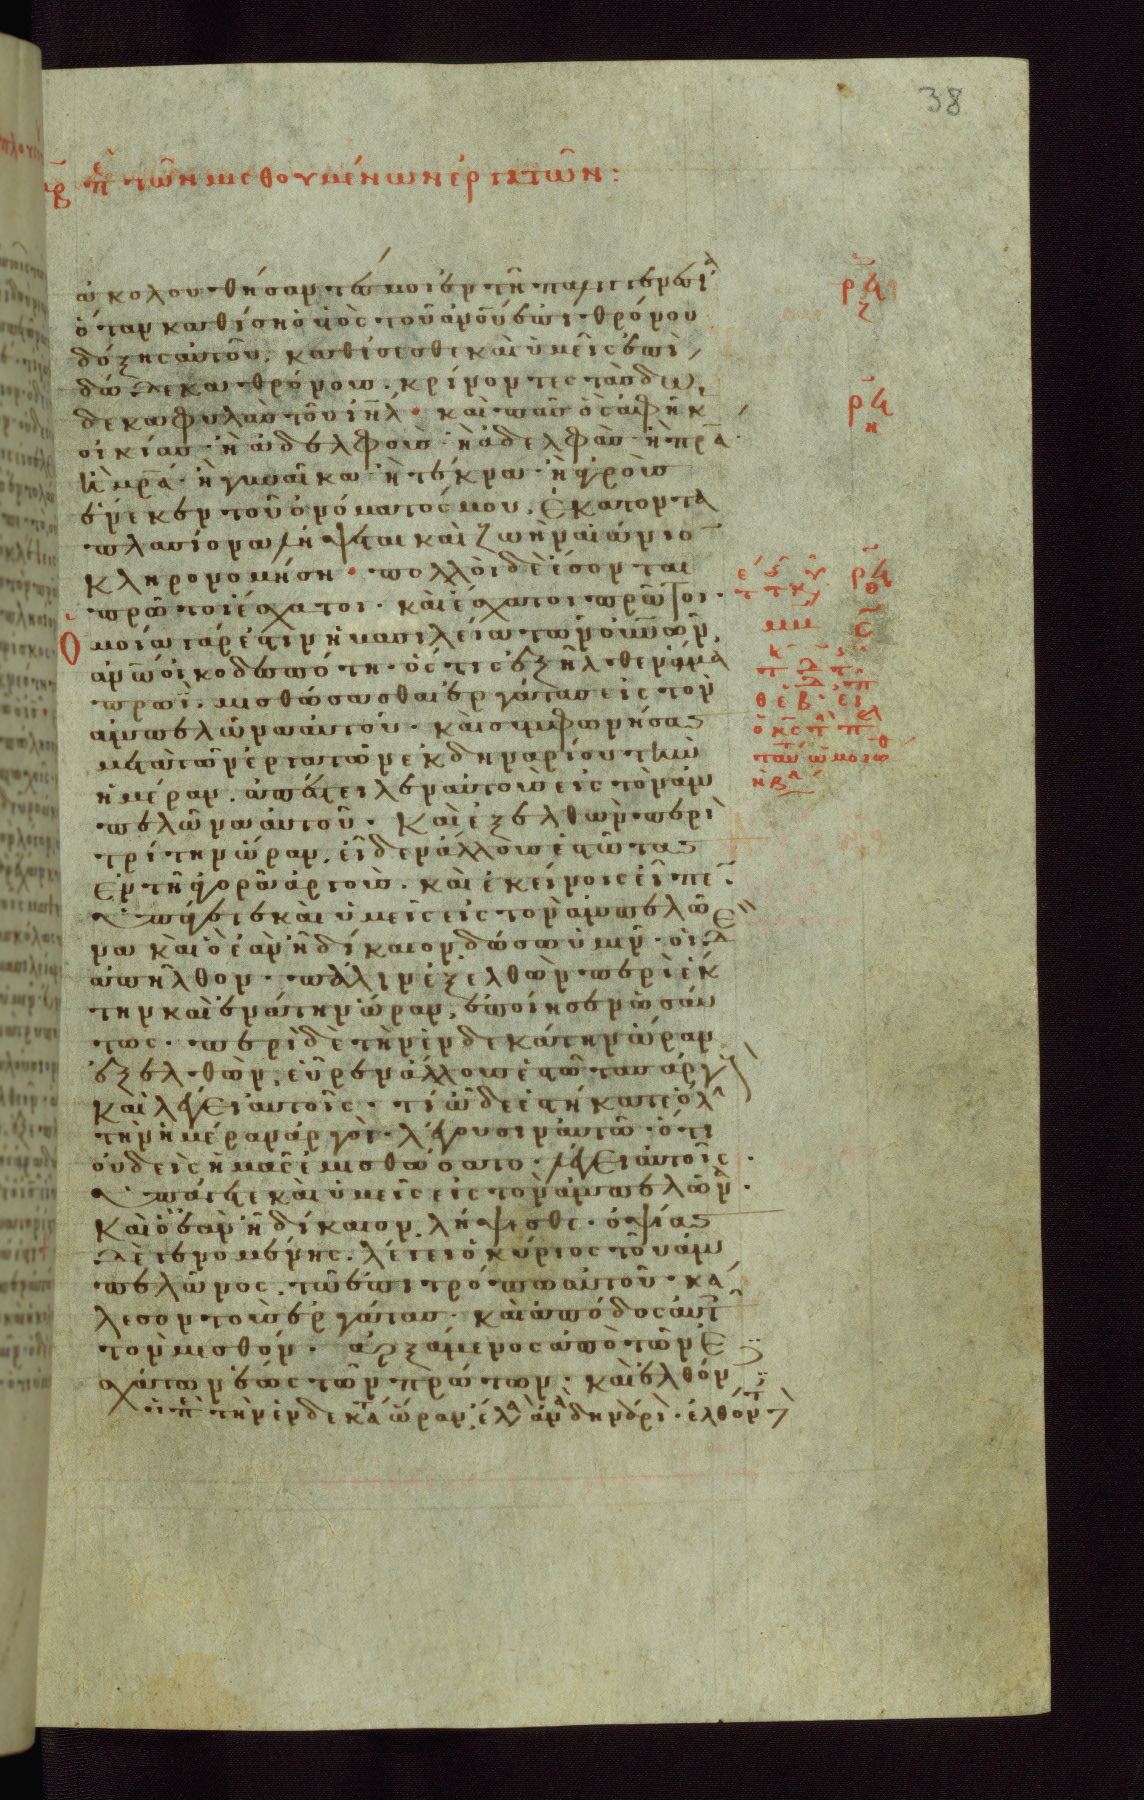 38
π τῶν μισθουμένων ἐργατῶν:
ἀκολουθήσαντές μοι ἐν τῇ παλιγγενεσίᾳ
ὅταν καθίσῃ ὁ υἱὸς τοῦ ἀνου ἐπὶ θρόνου
δόξης αὐτοῦ, καθίσεσθε καὶ ὑμεῖς ἐπὶ
δώδεκα θρόνους. κρίνοντες τὰς δώ
δεκα φυλὰς τοῦ ιηλ· καὶ πᾶς ὃς ἀφῆκ
οἰκίας ἢ ἀδελφοὺς ἢ ἀδελφὰς ἢ πρα
ἢ μρα ἢ γυναῖκα ἢ τέκνα ἢ ἀγροὺς
ἕνεκεν τοῦ ὀνόματός μου, ἑκατοντα
πλασίονα λήψεται καὶ ζωὴν αἰώνιο
κληρονομήσῃ· πολλοὶ δὲ ἔσονται
πρῶτοι ἔσχατοι. καὶ ἔσχατοι πρῶτοι.
Ὁμοία γάρ ἐστιν ἡ βασιλεία τῶν οὐνων,
ἀνω οἰκοδεσπότη. ὅστις ἐξῆλθεν ἅμα
πρωῒ. μισθώσασθαι ἐργάτας εἰς τὸν
ἀμπελῶνα αὐτοῦ. καὶ συμφωνήσας
μετὰ τῶν ἐργατῶν ἐκ δηναρίου τὴν
ἡμέραν. ἀπέστειλεν αὐτοὺς εἰς τὸν ἀμ
πελῶνα αὐτοῦ. Καὶ ἐξελθὼν περὶ
τρίτην ὥραν, εἶδεν ἄλλους ἑστῶτας
ἐν τῇ ἀγορᾷ ἀργούς. καὶ ἐκείνοις εἶπε.
ὑπάγετε καὶ ὑμεῖς εἰς τὸν ἀμπελῶ
να καὶ ὃ ἐὰν ᾖ δίκαιον δώσω ὑμῖν. οἱ δὲ
ἀπῆλθον. πάλιν ἐξελθὼν περὶ ἕκ
την καὶ ἐνάτην ὥραν, ἐποίησεν ὡσαύ
τως. περὶ δὲ τὴν ἑνδεκάτην ὥραν
ἐξελθὼν, εὗρεν ἄλλους ἑστῶτας ἀργ
καὶ λέγει αὐτοῖς. τί ὧδε ἑστήκατε ὅλ
τὴν ἡμέραν ἀργοί. λέγουσιν αὐτῷ. ὅτι
οὐδεὶς ἡμᾶς ἐμισθώσατο. λέγει αὐτοῖς.
ὑπάγετε καὶ ὑμεῖς εἰς τὸν ἀμπελῶν.
καὶ ὃ ἐὰν ᾖ δίκαιον, λήψεσθε. ὀψίας
δὲ γενομένης. λέγει ὁ κύριος τοῦ ἀμ
πελῶνος. τῷ ἐπιτρόπῳ αὐτοῦ. κά
λεσον τοὺς ἐργάτας. καὶ ἀπόδος αὐτ
τὸν μισθόν. ἀρξάμενος ἀπὸ τῶν ἐ
σχάτων ἕως τῶν πρώτων. καὶ ἐλθόν
οἱ π τὴν ἑνδεκάτ ὥραν, ἔλα ἀνὰ δηνάρι. ἐλθόντ